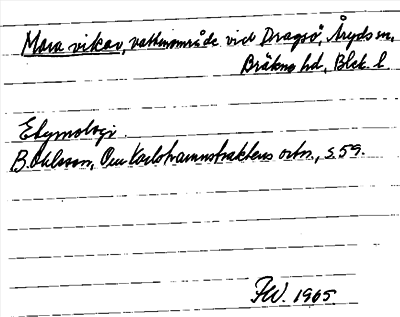 Mara vikar, vattenområde vid Dragsö, Åryds sn,
Bräkne hd, Blek. l
Etymologi.
B. Ohlsson, Om Karlshamnstraktens ortn., s. 59.
FW. 1965